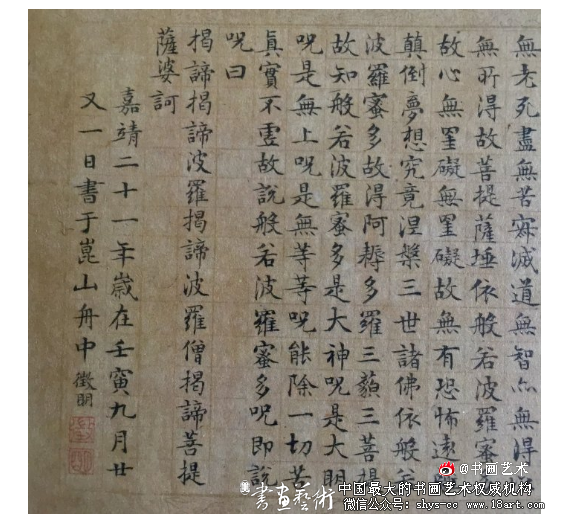 無老死盡無苦寂滅道無智亦無得
無所得故菩提薩埵依般若波羅蜜
故心無罣礙無罣礙故無有恐怖遠
顛倒夢想究竟涅槃三世諸佛依般若
波羅蜜多故得阿耨多羅三藐三菩提
故知般若波羅蜜多是大神呪是大明
呪是無上呪是無等等呪能除一切苦
真實不虛故說般若波羅蜜多呪即說
呪曰
揭諦揭諦波羅揭諦波羅僧揭諦菩提
薩婆訶
嘉靖二十一年歲在壬寅九月廿
又一日書于崑山舟中 徵明
@书画艺术
書畫藝術
中国最大的书画艺术权威机构
微信公众号: shys-cc www.18art.com